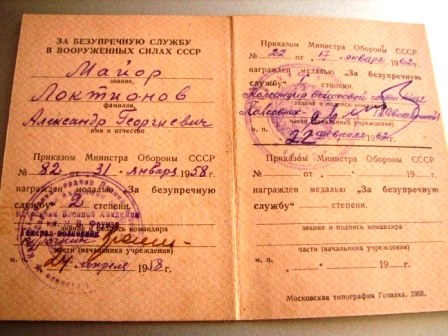 ЗА БЕЗУПРЕЧНУЮ СЛУЖБУ
В ВООРУЖЕННЫХ СИЛАХ СССР
Майор
звание,
Локтионов
фамилия,
Александр Георгиевич
имя и отчество
Приказом Министра Обороны СССР
№ 82 от 31 января 1958 г.
награжден медалью „За безупречную
службу“ 2 степени.
звание и подпись командира
Генерал-полковник
части (начальника учреждения)
м. п. апреля 1958 г.
Приказом Министра Обороны СССР
№ 22 от 17 января 1962 г.
награжден медалью „За безупречную
службу“ степени.
Командир войсковой части
звание и подпись командира
Полковник
части (начальника учреждения)
м. п. 22 февраля 1962 г.
Приказом Министра Обороны СССР
№ от 19 г.
награжден медалью „За безупречную
службу“ степени.
звание и подпись командира
части (начальника учреждения)
м. п. 19 г.
Московская типография Гознака. 1958.